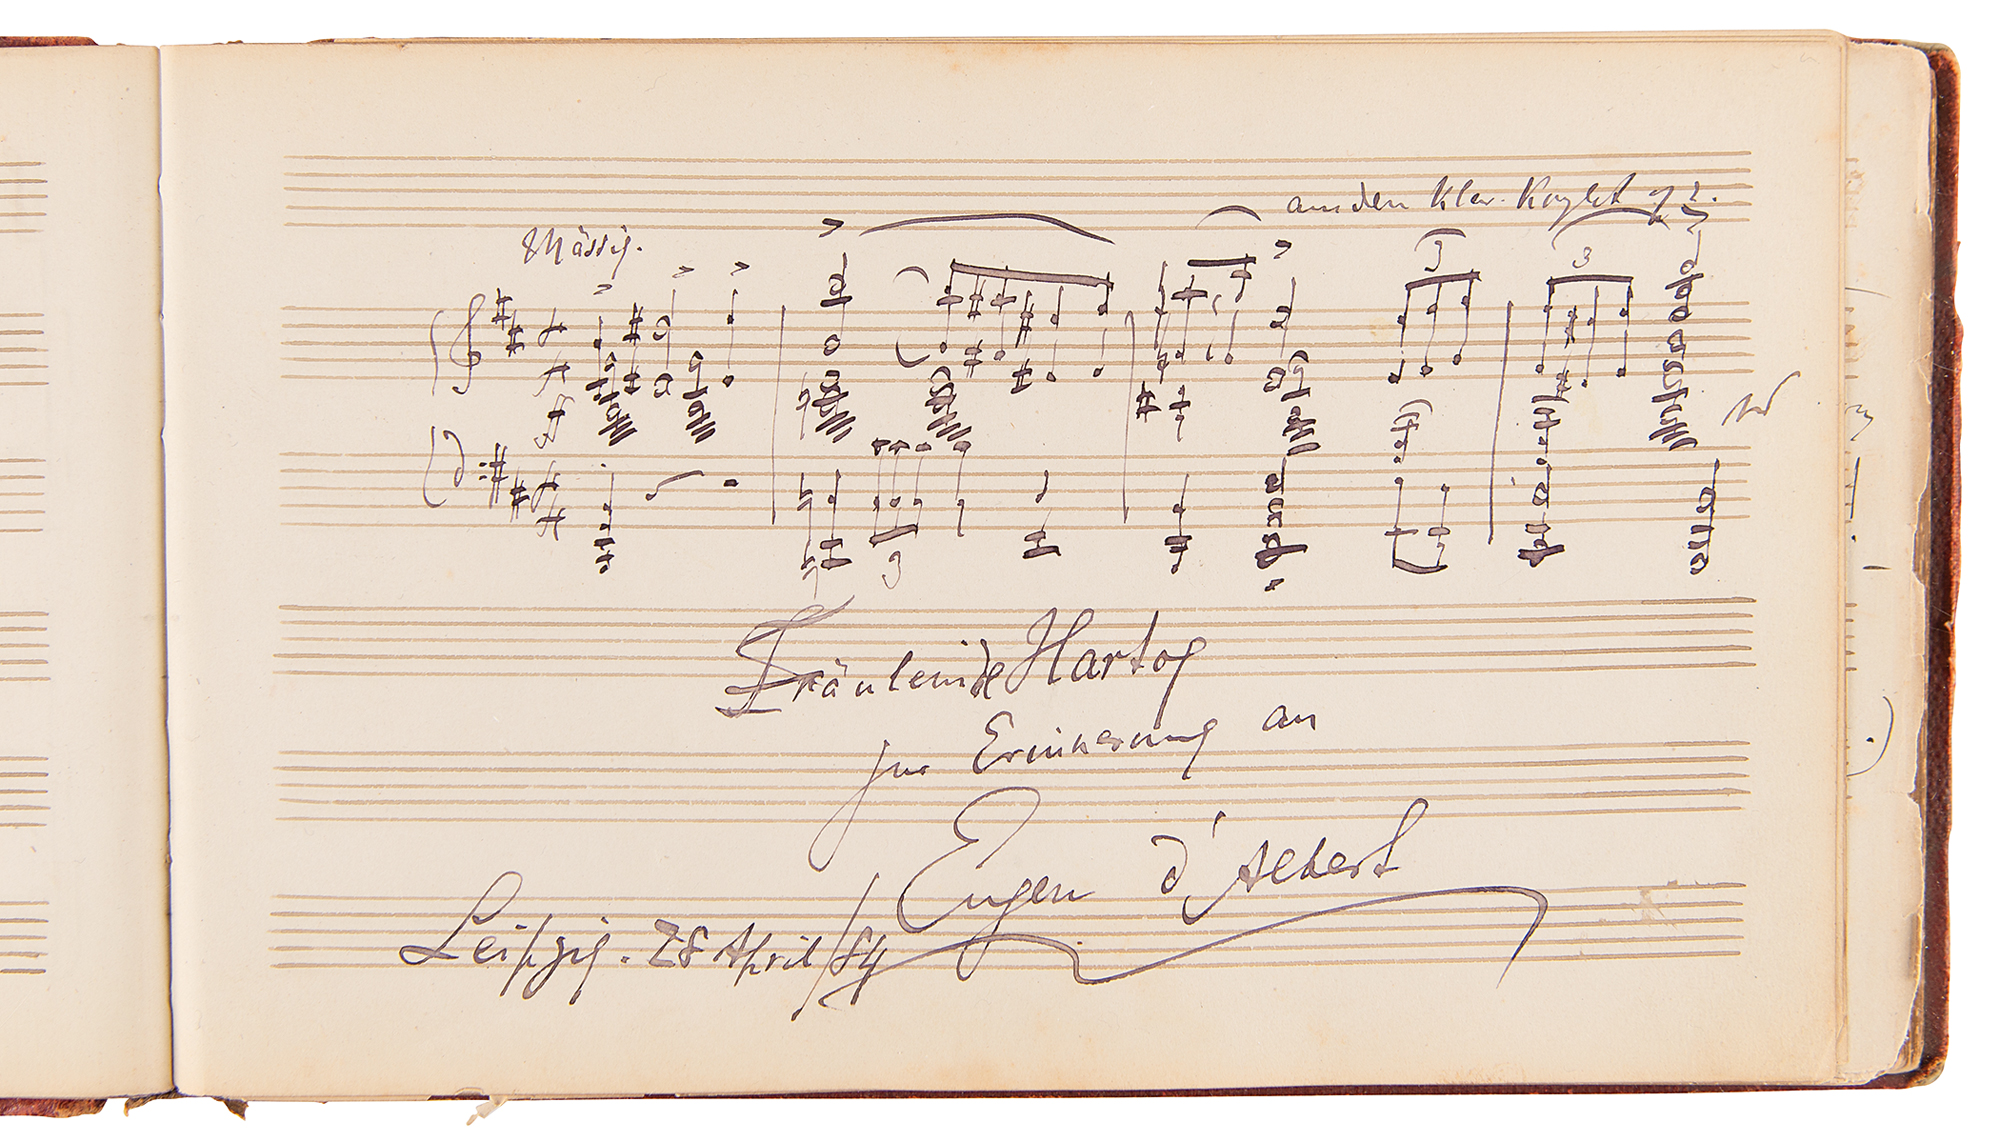 aus den Klav. Konzert
Mässig.
3 3
3
Fräulein de Hartog
zur Erinnerung an
Eugen d'Albert
Leipzig. 28 April/84